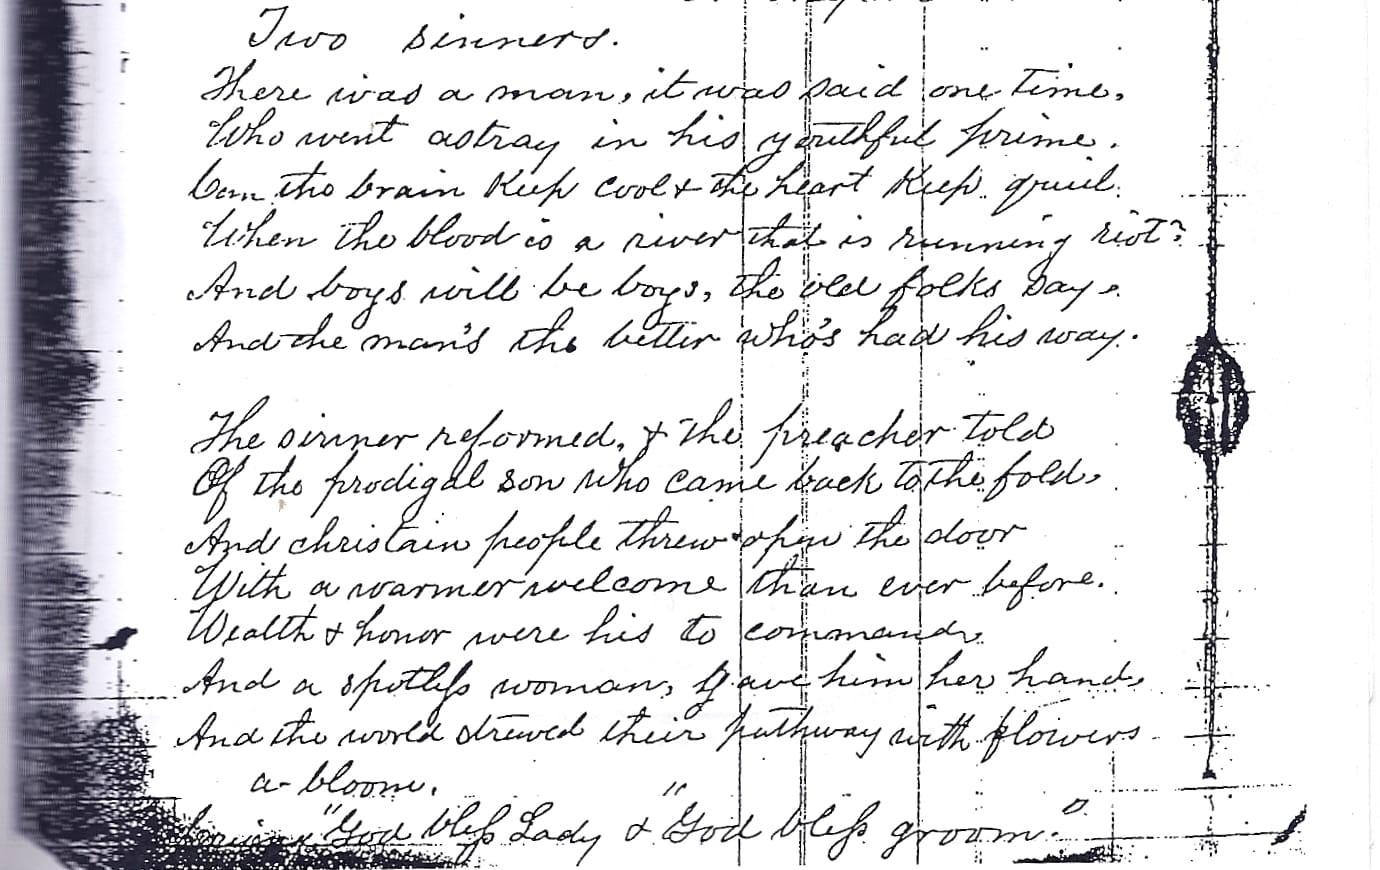 Two sinners.
There was a man, it was said one time,
Who went astray in his youthful prime.
Can the brain keep cool & the heart keep quiet
When the blood is a river that is running riot?
And boys will be boys, the old folks say,
And the man's the better who's had his way.
The sinner reformed, & the preacher told
Of the prodigal son who came back to the fold,
And christain people threw open the door
With a warmer welcome than ever before.
Wealth & honor were his to command,
And a spotless woman, gave him her hand,
And the world strewed their pathway with flowers
a-bloom,
"God bless Lady & "God bless groom."